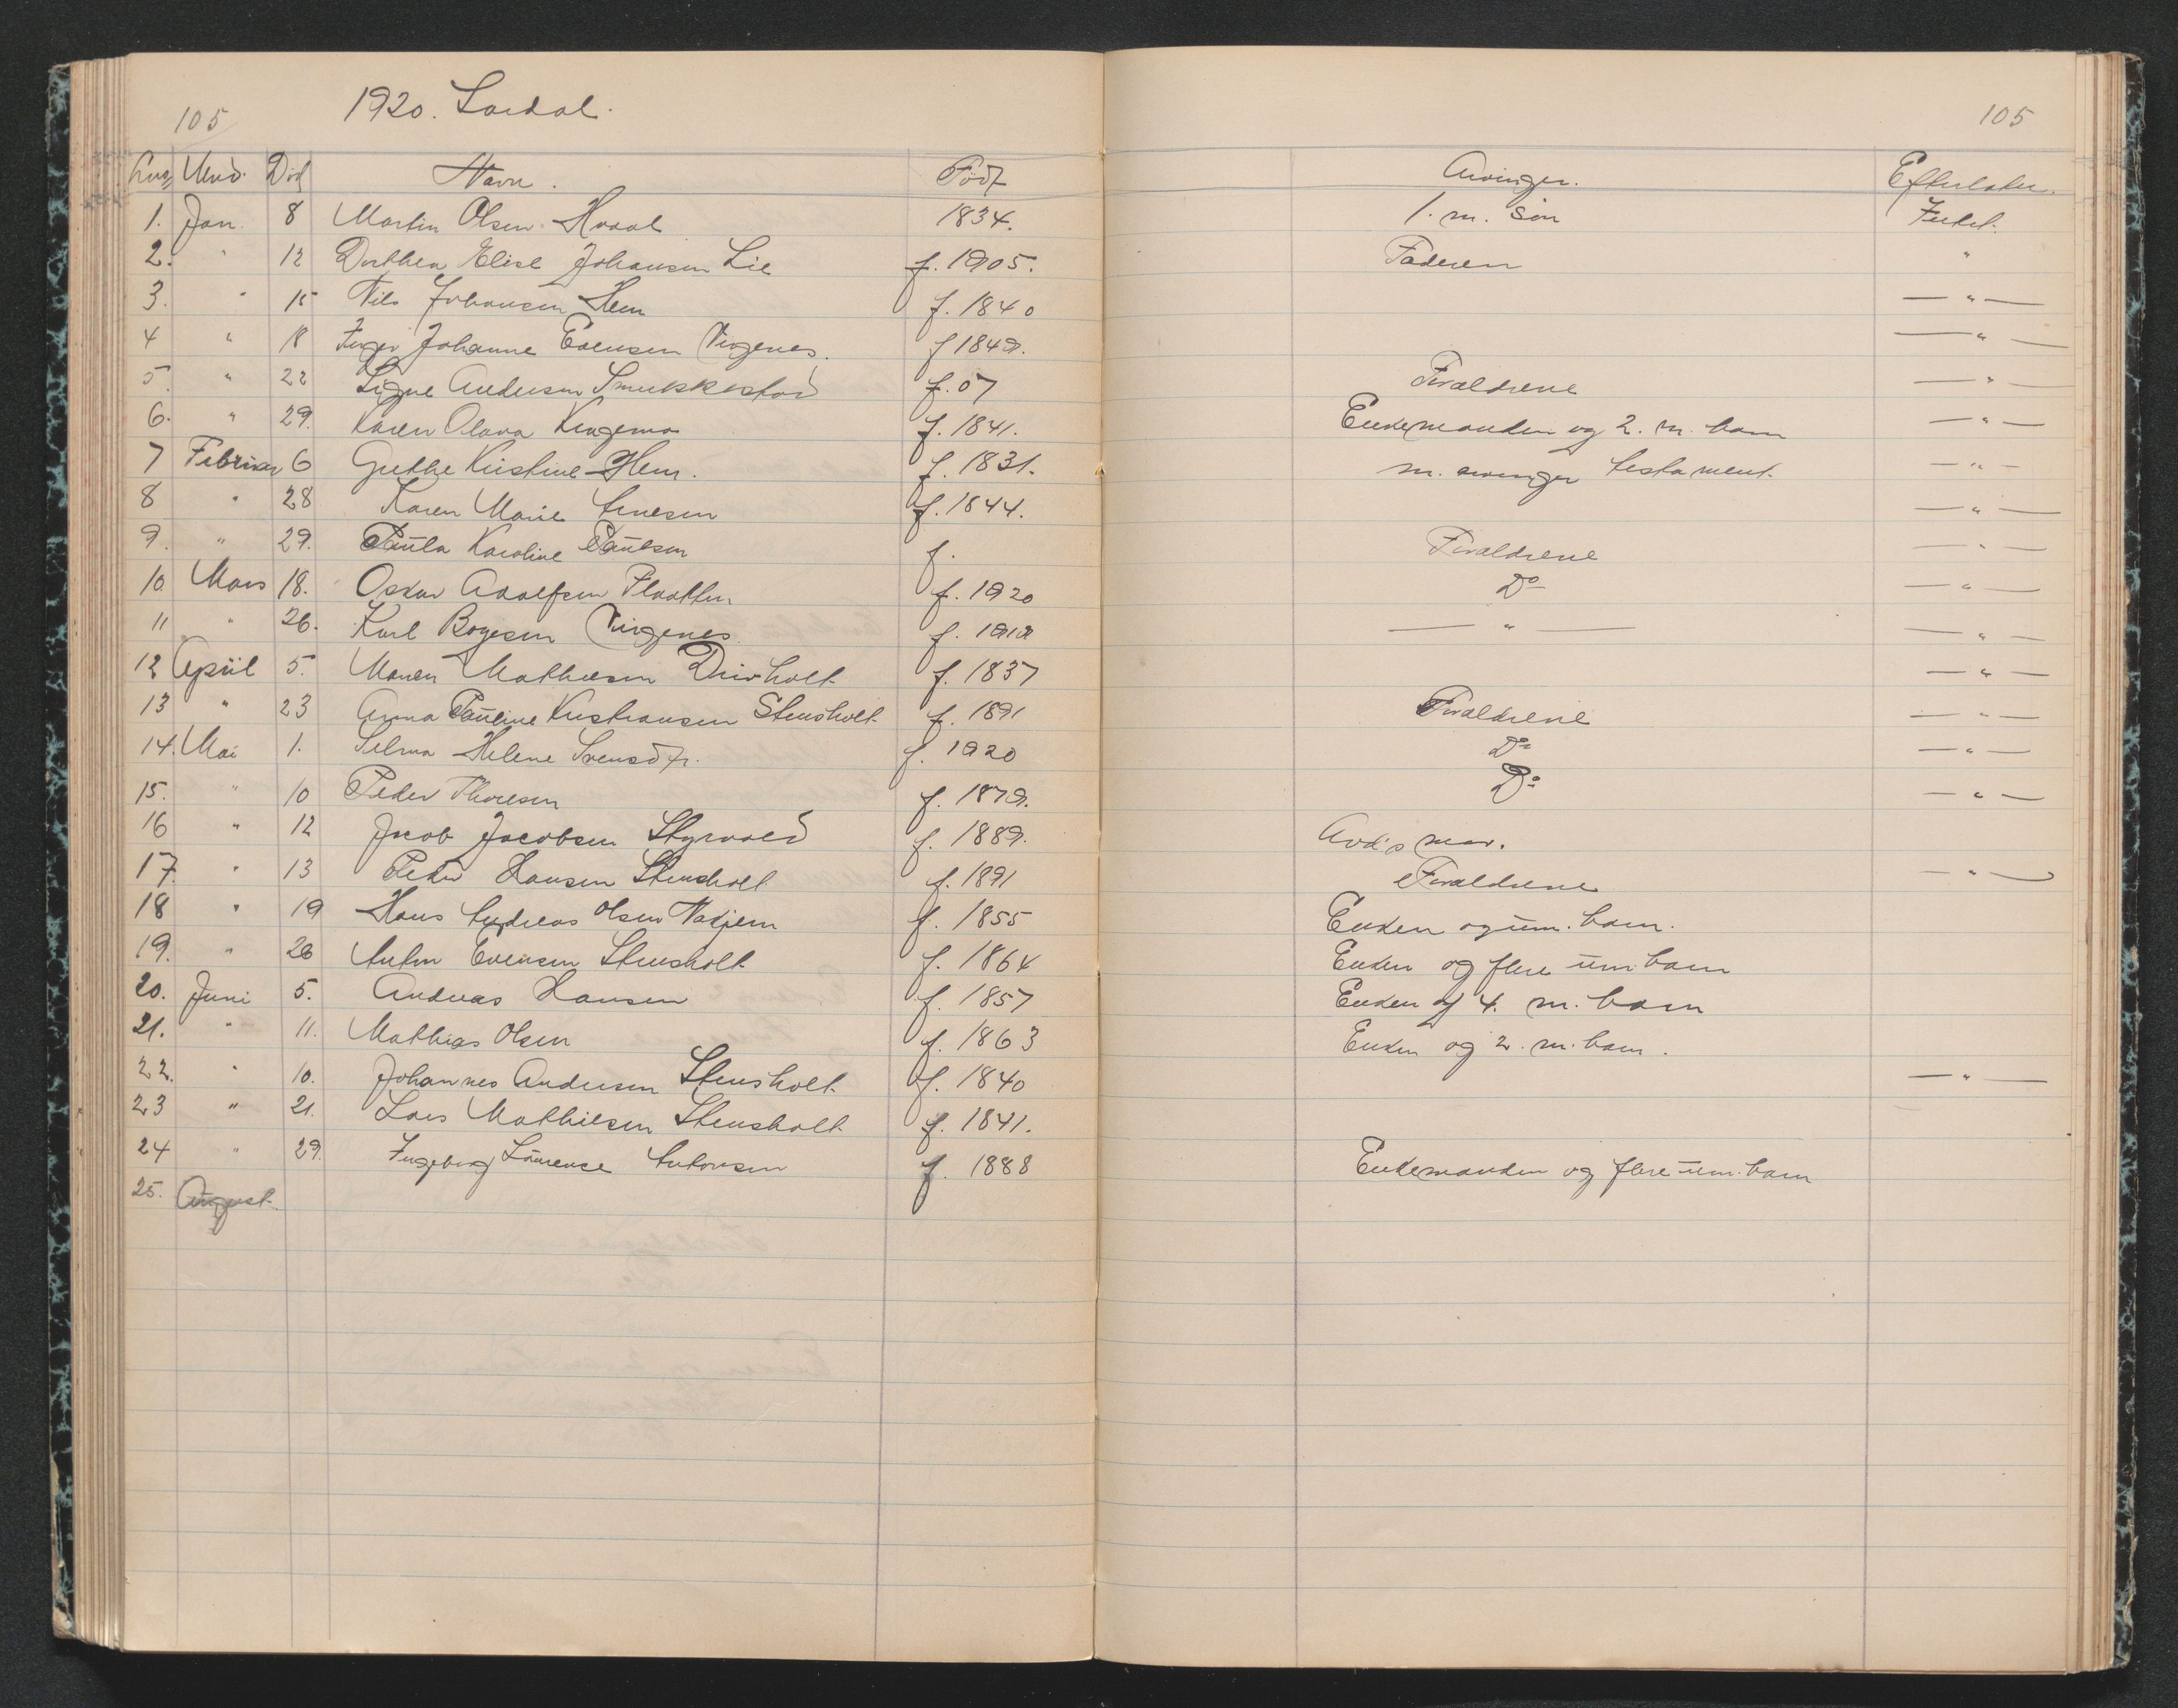 105 1920. Lardal. 105
Mnd. Död Navn. Födt Arvinger. Efterlater.
1. Jan. 8 Martin Olsen Hvaal 1834. 1. m. sön Intet.
2. " 12 Dorthea Elise Johansen Lie f. 1905. Faderen "
3. " 15 Nils Johansen Hem f. 1840 — " —
4 " 18 Inger Johanne Evensen Virgenes. f 1849. — " —
5. " 22 Signe Andersen Smukkestad f. 07 Forældrene — " —
6. " 29. Karen Olava f. 1841. Enkemanden og 2. m. barn — " —
7 Februar 6 Grethe Kristine Hem. f. 1831. m. arvinger testament. — " —
8 " 28 Karen Marie Arnesen f. 1844. — " —
9. " 29. Paula Karoline Paulsen f. Forældrene — " —
10. Mars 18. Oskar Adolfsen Flaatten f. 1920 Do — " —
11 " 26. Karl Bogesen Virgenes. f. 1919 — " — — " —
12 April 5. Maren Mathisen f. 1837 — " —
13 " 23 Anna Pauline Kristiansen Stensholt f. 1891 Forældrene — " —
14. Mai 1. Selma Helene Svensdtr. f. 1920 Do — " —
15. " 10 Peder Thoresen f. 1879. Do — " —
16 " 12 Jacob Jacobsen Styrvold f. 1889.
17. " 13 Peder Hansen Stensholt f. 1891 Forældrene — " —
18 " 19 Hans Andreas Olsen f. 1855 Enken og um. barn.
19. " 26 Anton Evensen Stensholt f. 1864 Enken og flere um barn
20. Juni 5. Andreas Hansen f. 1857 Enken og 4. m. barn
21. " 11. Mathias Olsen f. 1863 Enken og 2. m. barn.
22. " 10. Johannes Andersen Stensholt f. 1840 — " —
23 " 21. Lars Mathisen Stensholt f. 1841.
24 " 29. Ingeborg Laurence Antonsen f. 1888 Enkemanden og flere um. barn
25. August.